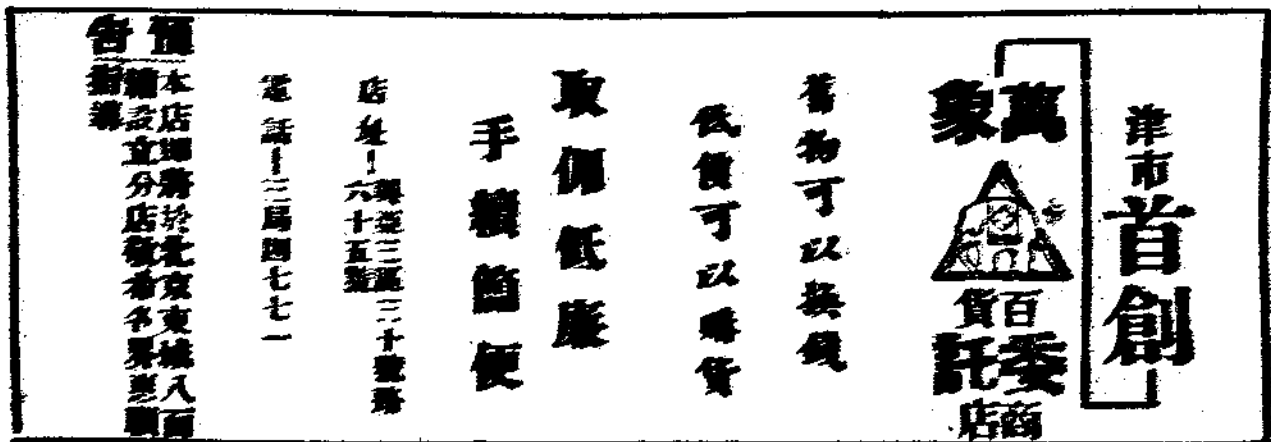 津市首創
萬象
百貨
委託
商店
舊物可以換錢
低價可以購貨
取佣低廉
手續簡便
店址—興亞三區二十號路
六十五號
電話—三局四七七一
預告
本店將於北京東城八面
槽設立分店敬希各界惠顧
指導